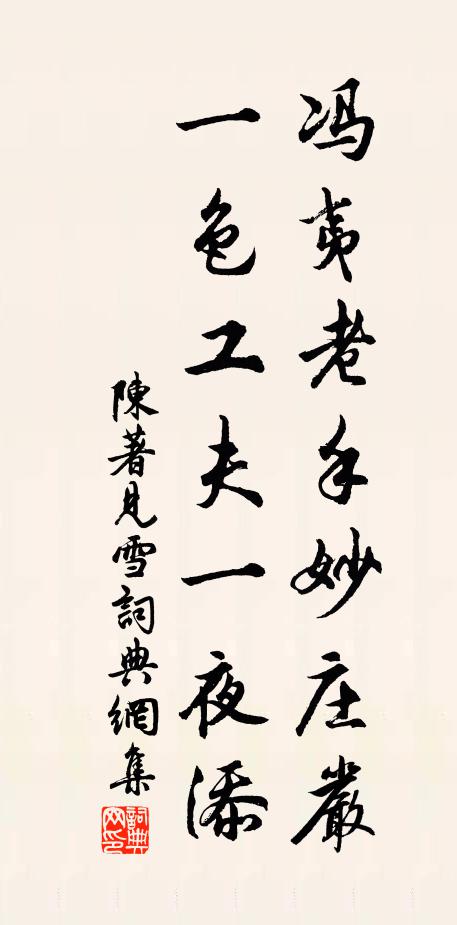 冯夷老手妙庄嚴
一色工夫一夜添
陳著見雪詞典網集
詞典网印